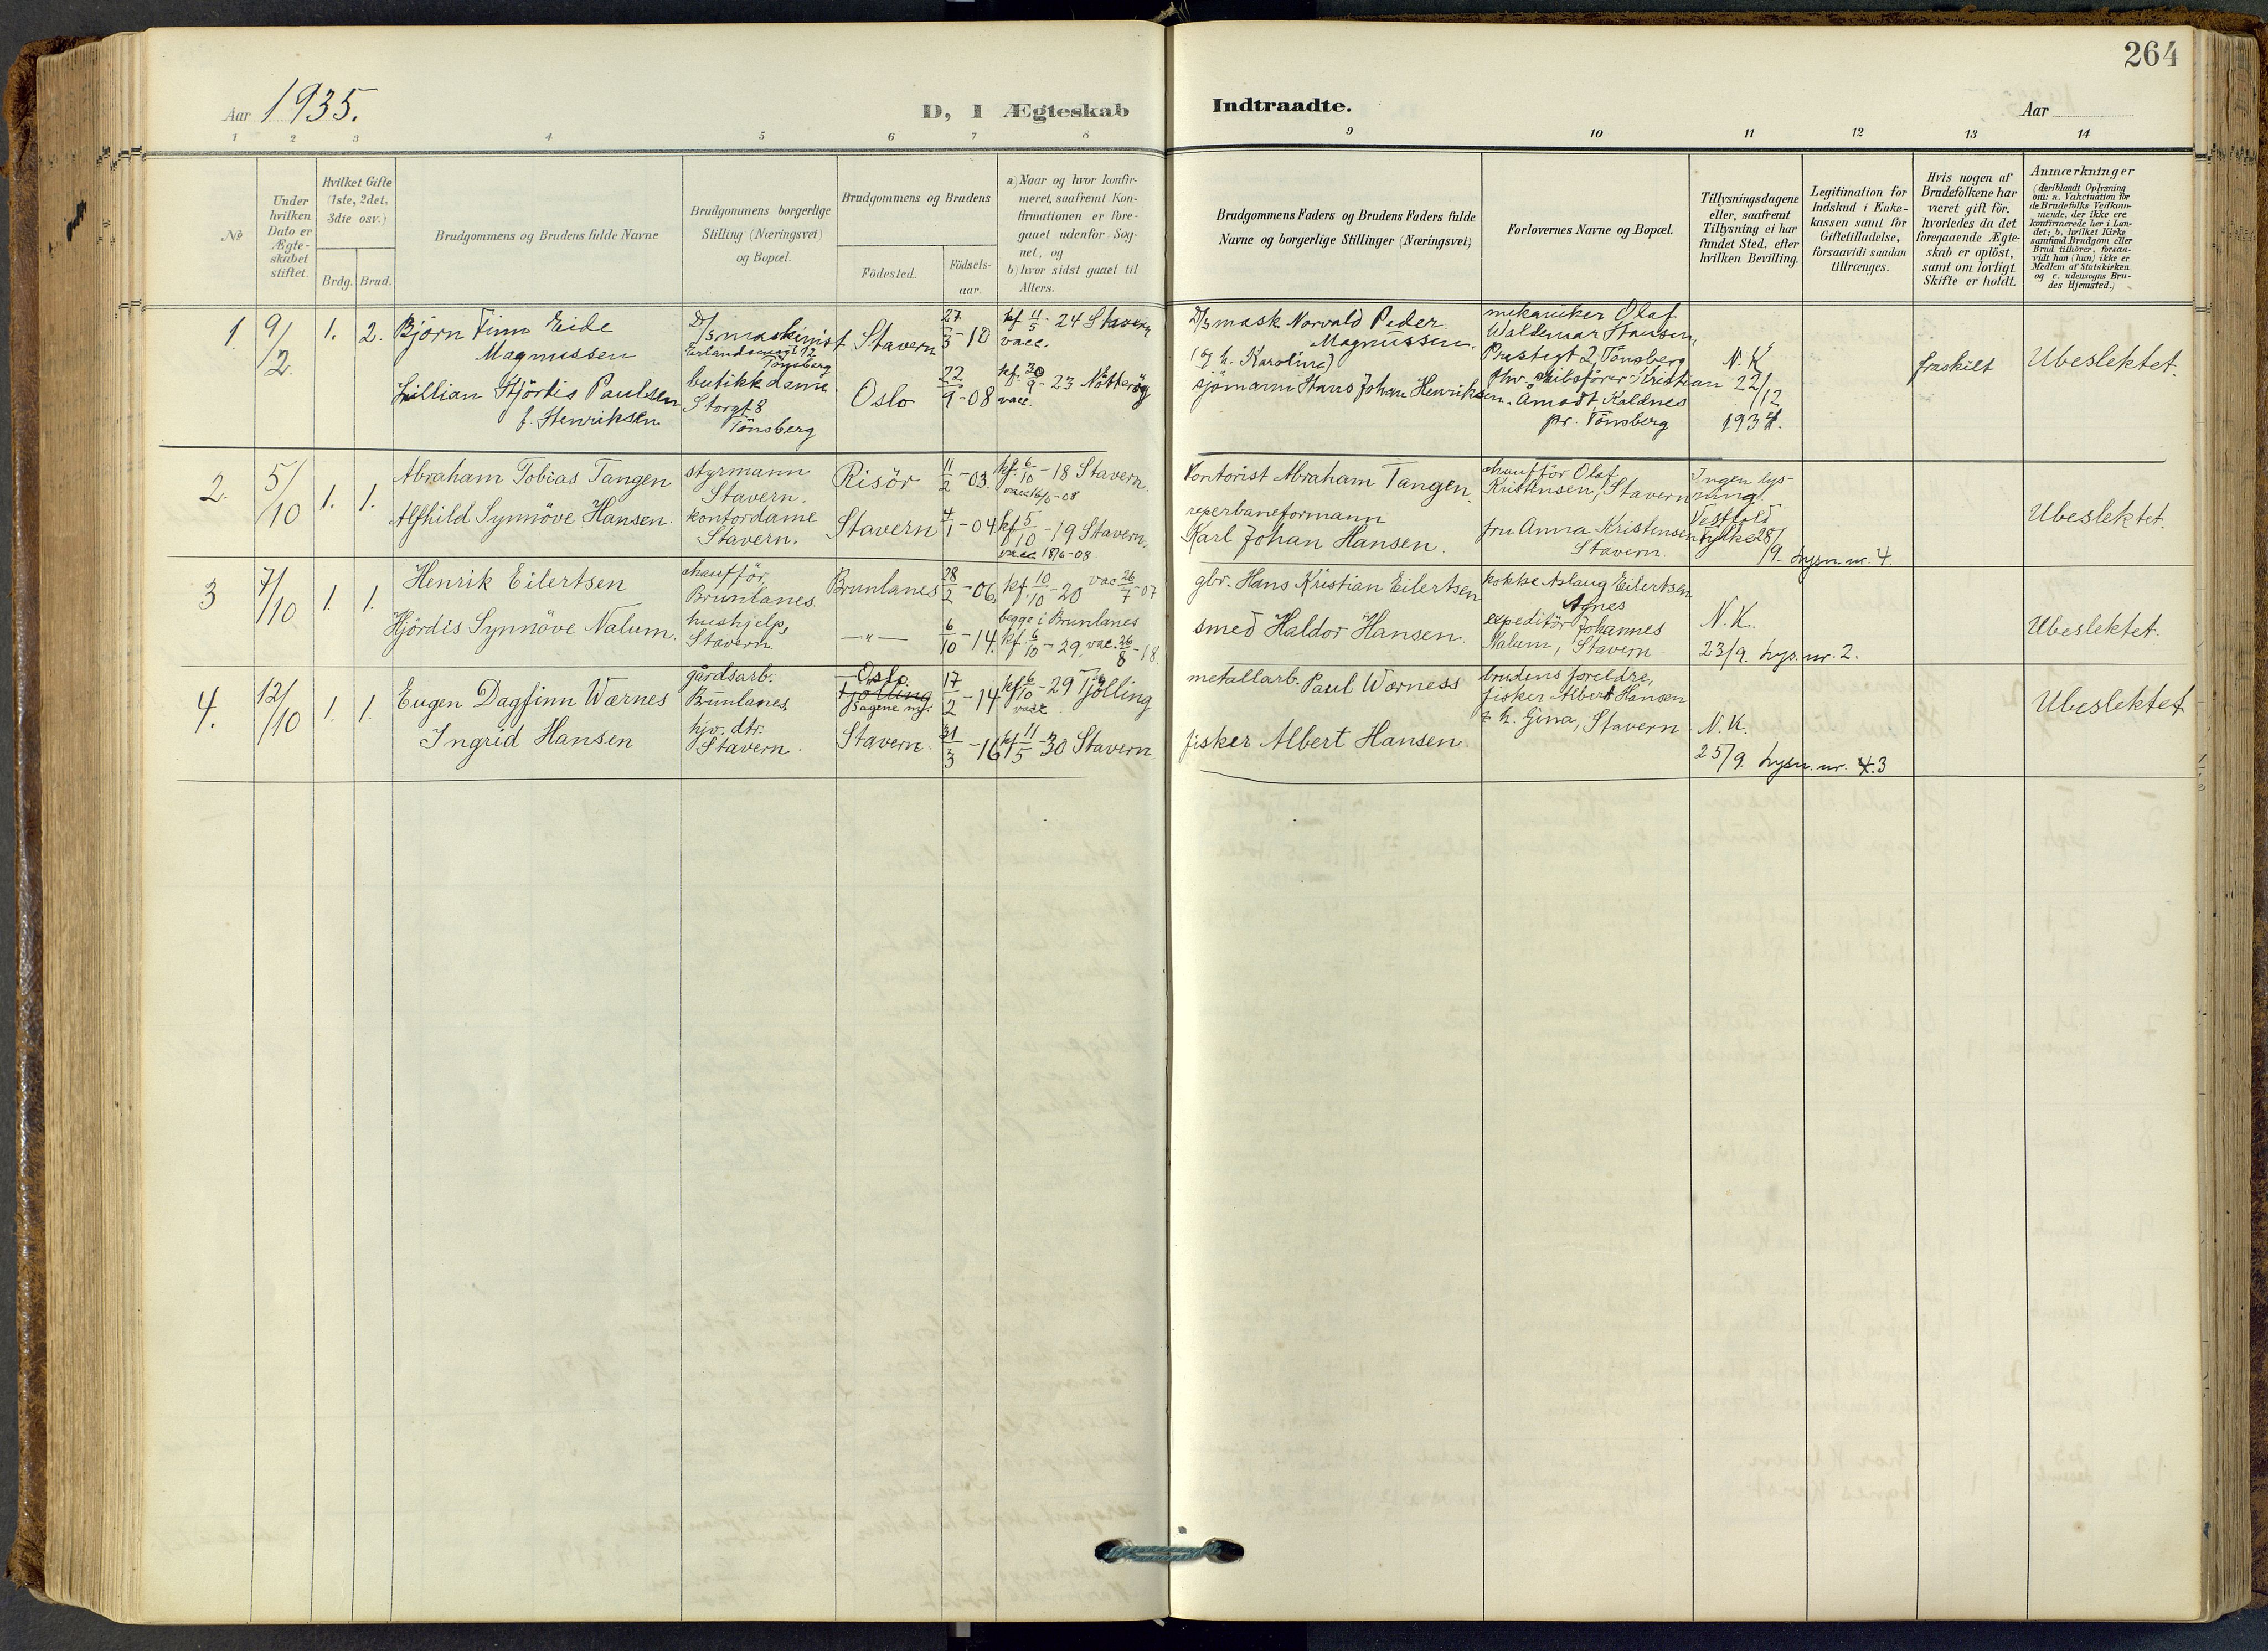 264
Aar 1935.
D, I Ægteskab
Indtraadte.
Aar
1 2 3 4 5 6 7 8 9 10 11 12 13 14
No
Under hvilken Dato er Ægteskabet stiftet.
Hvilket Gifte (1ste, 2det, 3die osv.)
Brdg. Brud.
Brudgommens og Brudens fulde Navne
Brudgommens borgerlige Stilling (Næringsvei) og Bopæl.
Brudgommens og Brudens
Födested.
Födsels-aar.
a) Naar og hvor konfirmeret, saafremt Konfirmationen er foregaaet udenfor Sognet, og
b) hvor sidst gaaet til Alters.
Brudgommens Faders og Brudens Faders fulde Navne og borgerlige Stillinger (Næringsvei)
Forlovernes Navne og Bopæl.
Tillysningsdagene eller, saafremt Tillysning ei har fundet Sted, efter hvilken Bevilling.
Legitimation for Indskud i Enkekassen samt for Giftetilladelse, forsaavidt saadan tiltrænges.
Hvis nogen af Brudefolkene har været gift för, hvorledes da det foregaaende Ægteskab er oplöst, samt om lovligt Skifte er holdt.
Anmærkninger
(deriblandt Oplysning om: a. Vakcination for de Brudefolks Vedkommende, der ikke ere konfirmerede her i Landet; b. hvilket Kirkesamfund Brudgom eller Brud tilhörer, forsaavidt han (hun) ikke er Medlem af Statskirken og c. udensogns Brudes Hjemsted.)
1 9/2 1. 2.
Bjørn Finn Eide
Magnussen
D/S maskinist
Tönsberg
Stavern
27/3-10
kf. 11/5-24 Stavern
vacc.
D/S mask. Norvald Peder
Magnussen.
(g. h. Karoline)
mekaniker Olaf
Waldemar Hansen,
Prestegt 2, Tönsberg
N.K.
22/12
1934.
fraskilt
Ubeslektet.
Lillian Hjördis Paulsen
f. Henriksen
butikkdame
Storgt 8
Tönsberg
Oslo
22/9-08
kf. 30/9-23 Nötteröy
vacc.
sjömann Hans Johan Henriksen.
fhv. skibsförer Kristian
Åmodt, Kaldnes
pr. Tönsberg
2. 5/10 1. 1.
Abraham Tobias Tangen
styrmann
Stavern.
Risör
11/2-03.
kf. 6/10-18 Stavern.
Kontorist Abraham Tangen.
chaufför Olaf
Kristensen, Stavern
Ingen lys-
ning
Vestfold
fylke 28/9. lysn. nr. 4.
Ubeslektet.
Alfhild Synnöve Hansen.
kontordame
Stavern.
Stavern
4/1-04
kf 5/10-19 Stavern.
vacc. 18/6-08
reperbaneformann
Karl Johan Hansen.
fru Anna Kristensen
Stavern.
3 7/10 1. 1.
Henrik Eilertsen
chaufför,
Brunlanes.
Brunlanes
28/2-06.
kf. 10/10-20 vac 26/7-07
begge i Brunlanes
gbr. Hans Kristian Eilertsen
kokke Aslaug Eilertsen
Agnes
N.K.
23/9. lys. nr. 2.
Ubeslektet.
Hjördis Synnöve Nalum.
hushjelp,
Stavern.
— " —
6/10-14.
kf. 6/10-29. vac. 26/8-18.
smed Haldor Hansen.
expeditör Johannes
Nalum, Stavern
4. 12/10 1. 1.
Eugen Dagfinn Wærnes
gårdsarb.
Brunlanes
Oslo.
Tjölling
17/2-14
kf 6/10-29 Tjölling
vacc
metallarb. Paul Wærness
brudens foreldre,
fisker Albert Hansen
& h. Gina, Stavern
N.K.
25/9. lysn. nr. 4.3
Ubeslektet
Ingrid Hansen
hjv. dtr.
Stavern.
Stavern.
31/3-16
kf 11/5-30 Stavern
fisker Albert Hansen.